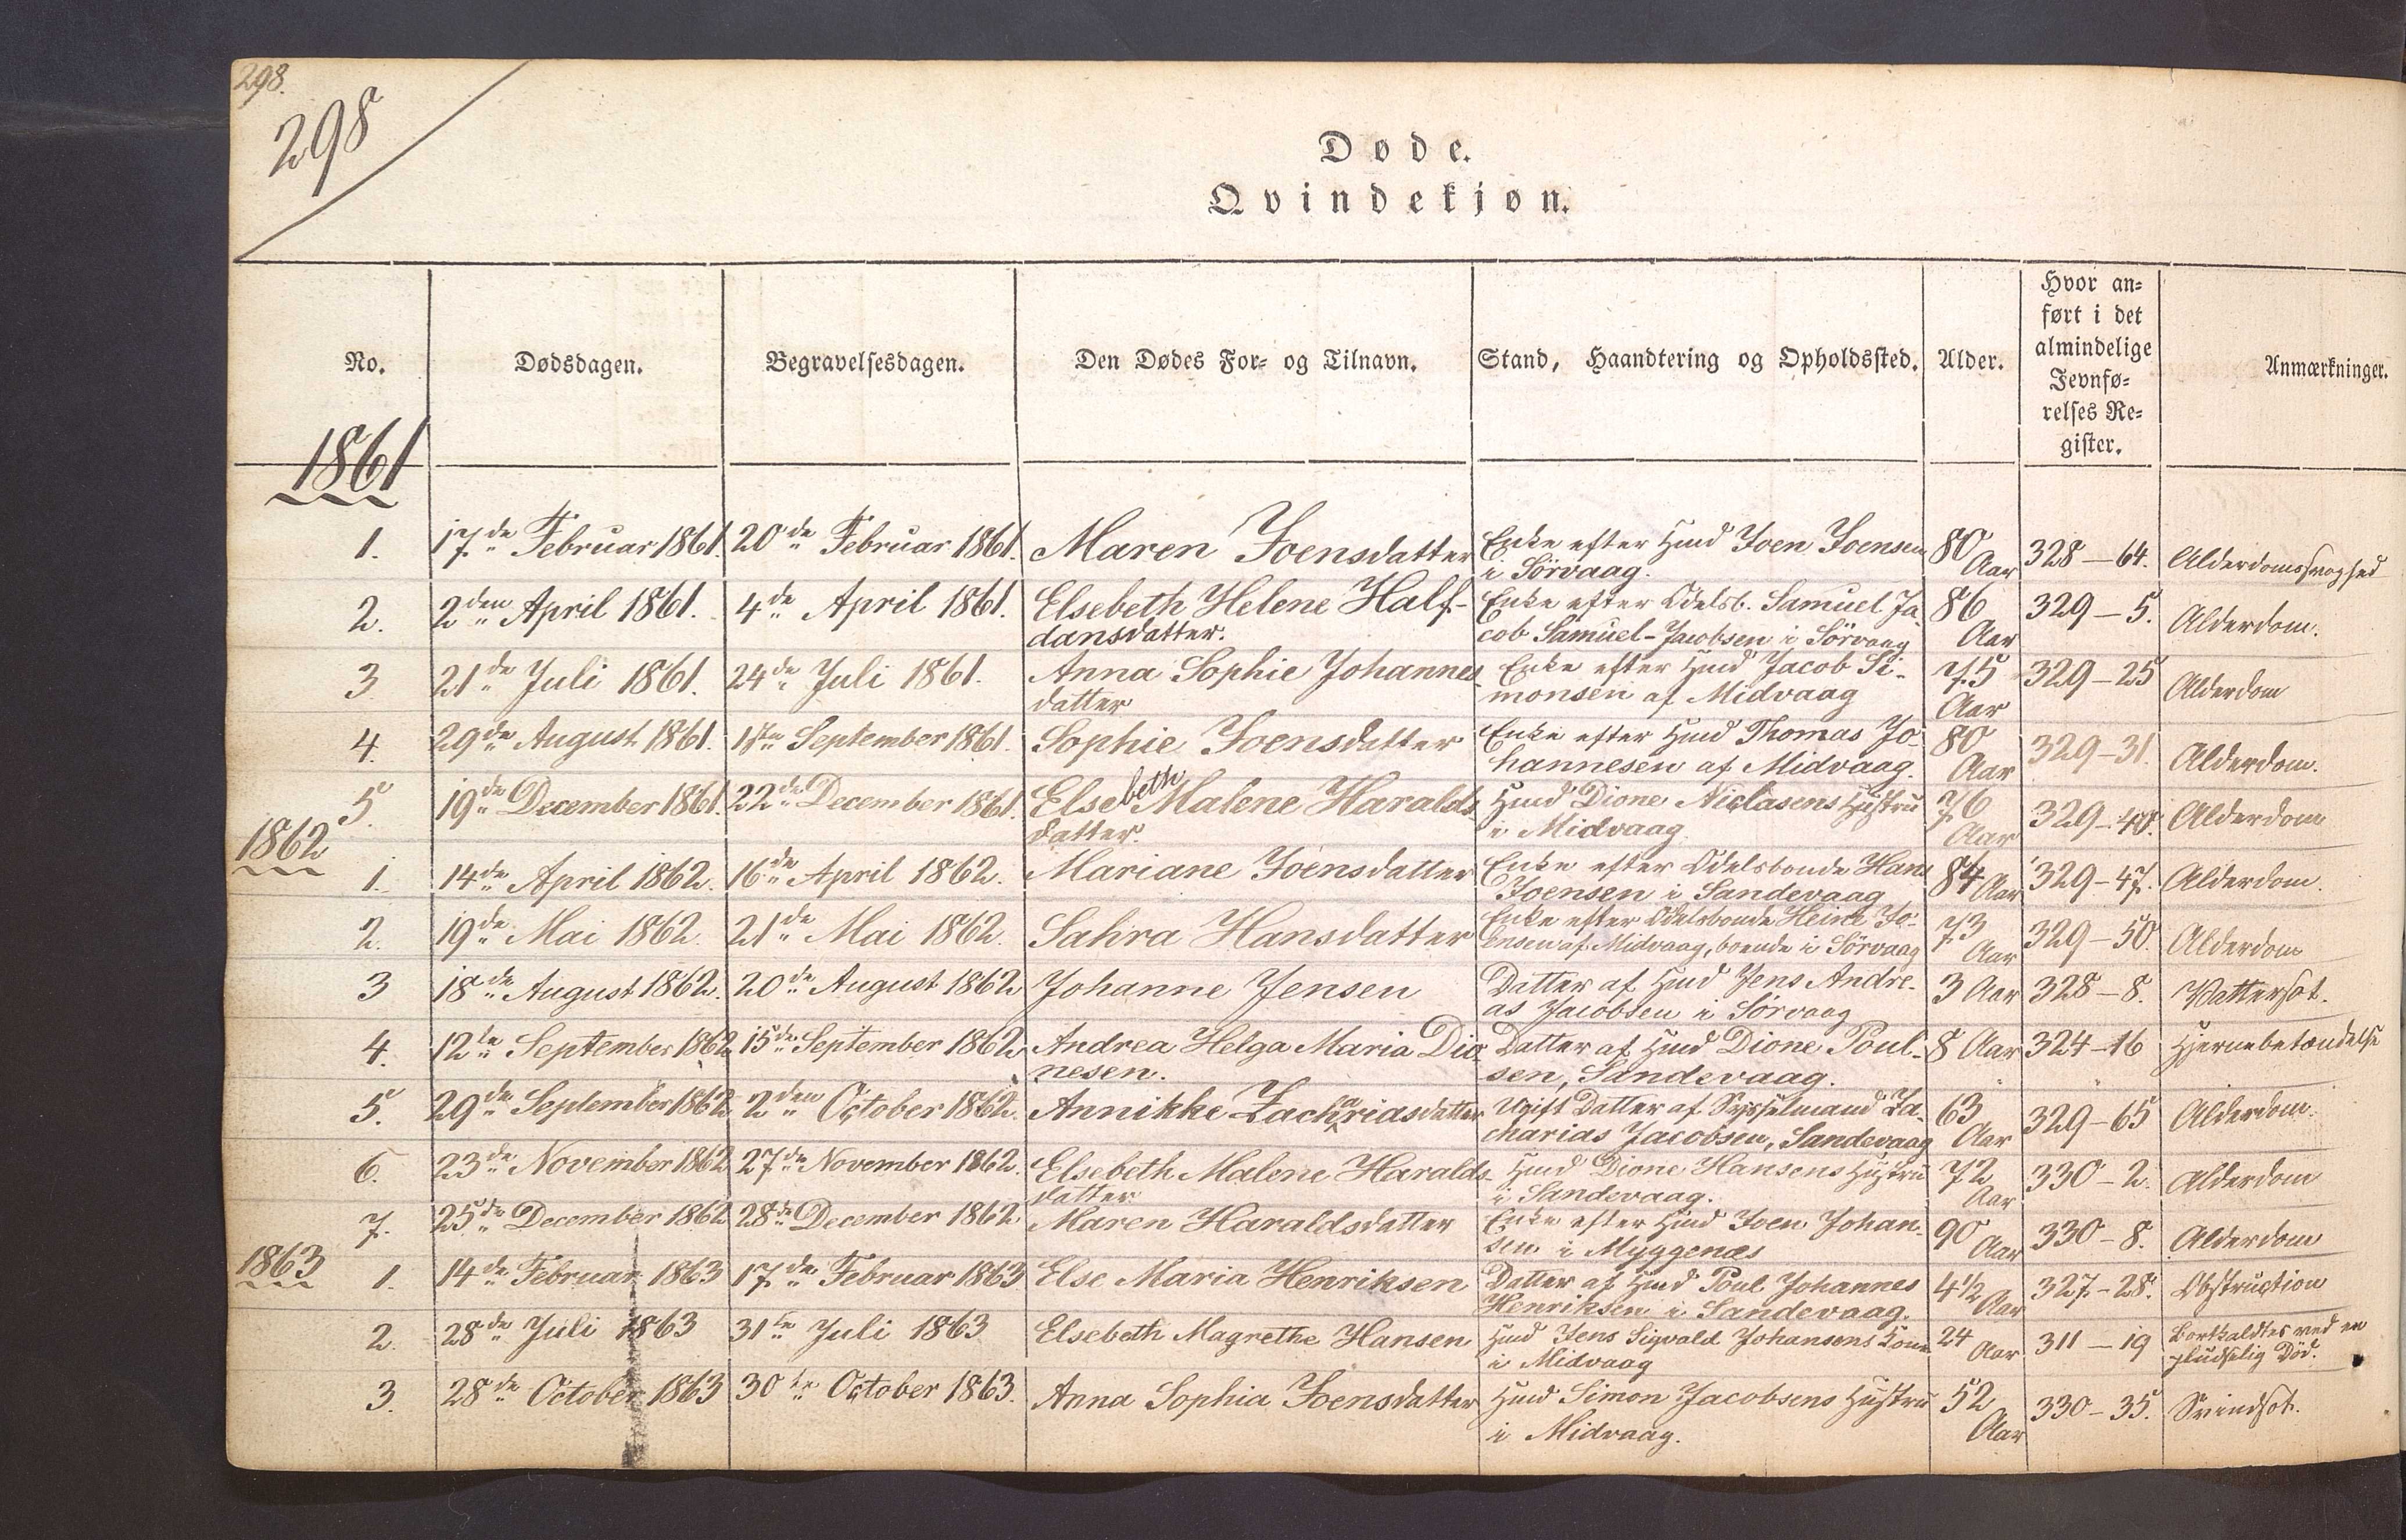 298.
298
Døde.
Qvindekjøn.
No. Dødsdagen. Begravelsesdagen. Den Dødes For- og Tilnavn. Stand, Haandtering og Opholdssted. Alder. Hvor an-
ført i det
almindelige
Jevnfø-
relses Re-
gister. Anmærkninger.
1861
1. 17de Februar 1861. 20de Februar 1861. Maren Joensdatter Enke efter Huusmd Joen Joensen 80 328–64. Alderdomssvaghed
i Sörvaag. Aar
2. 2den April 1861. 4de April 1861. Elsebeth Helene Half- Enke efter Odelsb. Samuel Ja 86 329–5. Alderdom.
dansdatter. cob Samuel-Jacobsen i Sörvaag Aar
3 21de Juli 1861. 24de Juli 1861. Anna Sophie Johannes Enke efter Huusmd Jacob Si- 75 329–25 Alderdom
datter monsen af Midvaag Aar
4. 29de August 1861. 1ste September 1861. Sophie Joensdatter Enke efter Huusmd Thomas Jo- 80 329–31. Alderdom.
hannesen af Midvaag. Aar
5. 19de December 1861. 22de December 1861. Elsebeth Malene Haralds Huusmd Dione Niclasens Hustru 76 329–40. Alderdom
datter. i Midvaag Aar
1862
1. 14de April 1862. 16de April 1862. Mariane Joensdatter Enke efter Odelsbonde Hans 84 Aar 329–47. Alderdom.
Joensen i Sandevaag
2. 19de Mai 1862. 21de Mai 1862. Sahra Hansdatter Enke efter Odelsbonde Heine Jo- 73 329–50. Alderdom
ensen af Midvaag, boende i Sörvaag Aar
3 18de August 1862. 20de August 1862 Johanne Jensen Datter af Huusmd Jens Andre- 3 Aar 328–8. Vattersot.
as Jacobsen i Sörvaag
4. 12te September 1862 15de September 1862 Andrea Helga Maria Dio Datter af Huusmd Dione Poul- 8 Aar 324–16 Hjernebetændelse
nesen. sen, Sandevaag.
5. 29de September 1862 2den October 1862. Annikke Zachariasdatter Ugift Datter af Sysselmand Za- 63 329–65 Alderdom.
charias Jacobsen, Sandevaag Aar
6. 23de November 1862 27de November 1862. Elsebeth Malene Haralds- Huusmd Dione Hansens Hustru 72 330–2. Alderdom
datter i Sandevaag. Aar
7. 25de December 1862 28de December 1862 Maren Haraldsdatter Enke efter Huusmd Joen Johan- 90 330–8. Alderdom
sen i Myggenæs Aar
1863
1. 14de Februar 1863 17de Februar 1863 Else Maria Henriksen Datter af Huusmd Poul Johannes 4½ 327–28. Obstruction
Henriksen i Sandevaag. Aar
2. 28de Juli 1863 31te Juli 1863 Elsebeth Magrethe Hansen Huusmd Jens Sigvald Johansens Kone 24 311–19 Bortkaldtes ved en
i Midvaag Aar pludselig Död.
3. 28de October 1863 30te October 1863. Anna Sophia Joensdatter Huusmd Simon Jacobsens Hustru 52 330–35. Svindsot.
i Midvaag. Aar